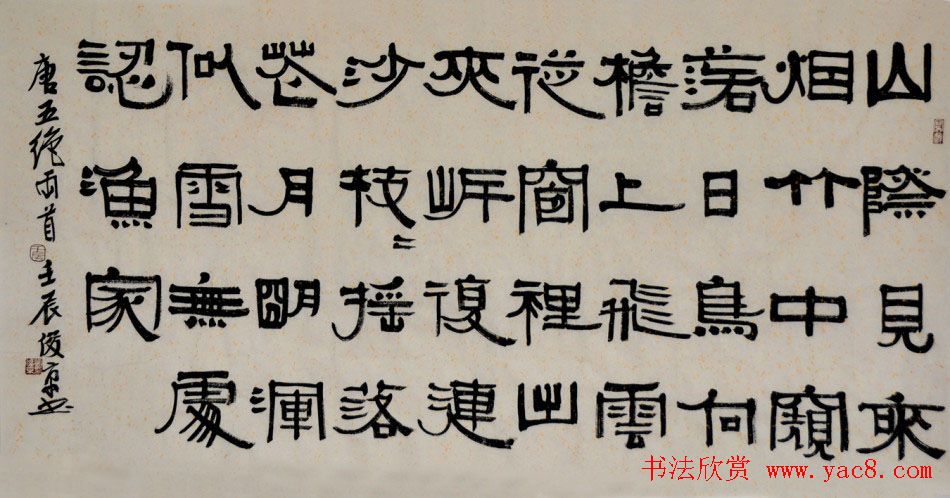 山際見來
烟竹中窺
落日鳥向
檐上飛雲
從窗裡出
夾岸復連
沙枝〻搖落
花月明渾
似雪無處
認漁家
唐五絶两首 壬辰俊京書
书法欣赏 www.yac8.com